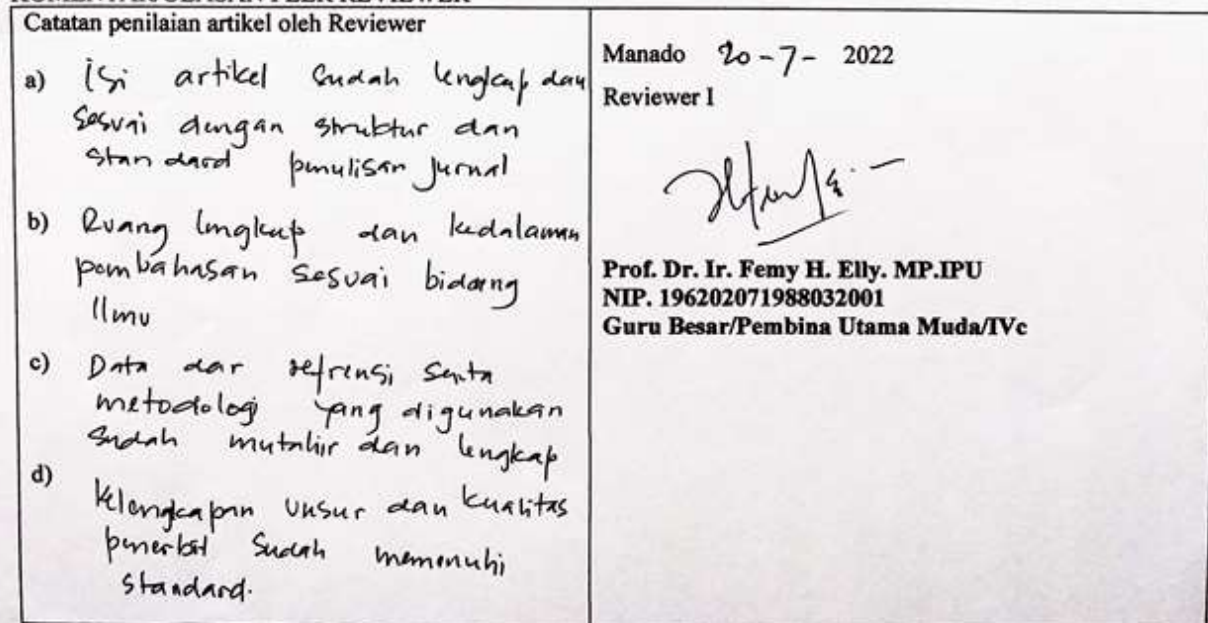 Catatan penilaian artikel oleh Reviewer
a) isi artikel sudah lengkap dan
sesuai dengan struktur dan
standard penulisan jurnal
b) Ruang lingkup dan kedalaman
pembahasan sesuai bidang
Ilmu
c) Data dar refrensi serta
metodologi yang digunakan
sudah mutahir dan lengkap
d)
kelengkapan unsur dan kualitas
penerbit sudah memenuhi
standard.
Manado 20-7- 2022
Reviewer I
Prof. Dr. Ir. Femy H. Elly. MP.IPU
NIP. 196202071988032001
Guru Besar/Pembina Utama Muda/IVc